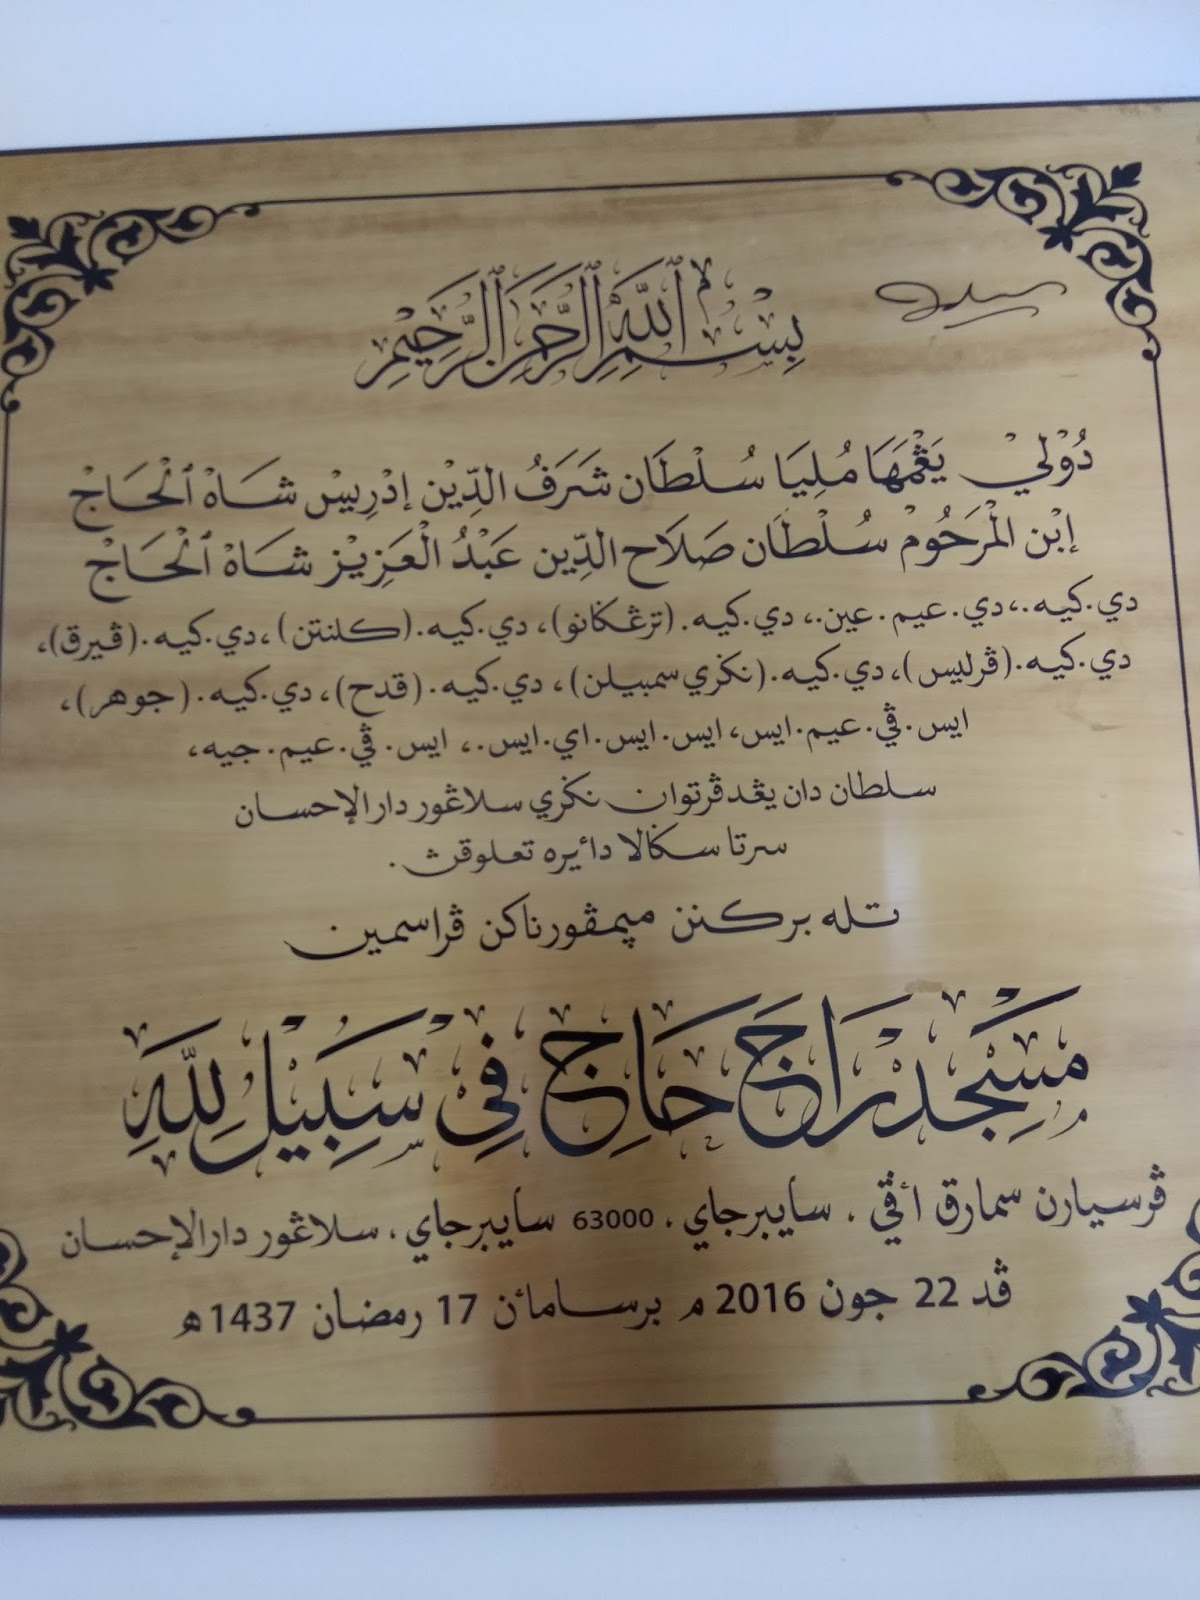 بِسْمِ اللَّهِ الرَّحْمٰنِ الرَّحِيْمِ
دُوْلِيْ يَڠْمَهَا مُلِيَا سُلْطَان شَرَفُ الدِّيْن إِدْرِيسْ شَاهْ ٱلْحَاجْ
إِبْن الْمَرْحُوْم سُلْطَان صَلَاح الدِّين عَبْدُ الْعَزِيْز شَاهْ ٱلْحَاجْ
دي.كيه.،دي.عيم.عين.، دي.كيه.(ترڠݢانو)، دي.كيه.(كلنتن)،دي.كيه.(ڤيرق)،
دي.كيه.(ڤرليس)، دي.كيه.(نݢري سمبيلن)، دي.كيه.(قدح)، دي.كيه.(جوهر)،
ايس.ڤي.عيم.ايس، ايس.ايس.اي.ايس.، ايس.ڤي.عيم.جيه،
سلطان دان يڠدڤرتوان نݢري سلاڠور دارالإحسان
سرتا سݢالا دأيره تعلوقڽ.
تله بركنن ميمڤورناكن ڤراسمين
مَسْجِدْ رَاجَ حَاجِ فِيْ سَبِيْلِ لِلّٰهِ
ڤرسيارن سمارق اڤي ، سايبرجاي ، 63000 سايبرجاي ، سلاڠور دارالإحسان
ڤد 22 جون 2016 م برسامأن 17 رمضان 1437ه